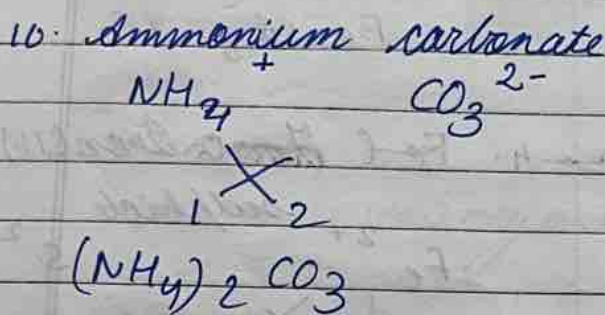 10. Ammonium carbonate
NH₄⁺ CO₃²⁻
1 2
(NH₄)₂ CO₃